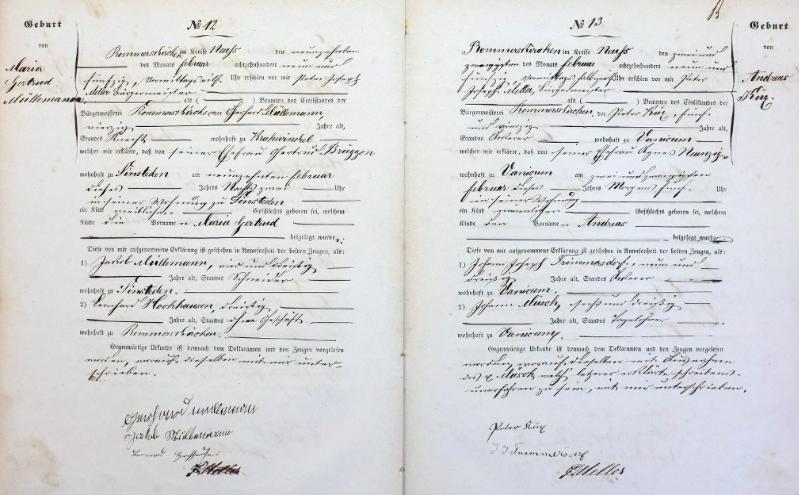 Geburt
von
Maria
Gertrud
Müllemann
№ 12
Rommerskirchen im Kreise Neuss den neunzehnten
des Monats Februar achtzehnhundert neun und
fünfzig, Vormittags Uhr erschien vor mir Peter Joseph
Meller Bürgermeister
als ( ) Beamten des Civilstandes der
Bürgermeisterei Rommerskirchen Gerhard Müllemann
vierzig Jahre alt,
Standes Knecht wohnhaft zu
welcher mir erklärte, daß von seiner Ehefrau Gertrud Brüggen
wohnhaft zu Sinsteden am neunzehnten Februar
dieses Jahres Nachts zwei Uhr
in seiner Wohnung zu Sinsteden
ein Kind weiblichen Geschlechts geboren sei, welchem
Kinde die Vornamen Maria Gertrud
beigelegt wurde.
Diese von mir aufgenommene Erklärung ist geschehen in Anwesenheit der beiden Zeugen, als:
1) Jakob Müllemann, vier und dreißig
Jahre alt, Standes Schneider
wohnhaft zu Sinsteden.
2) Leonhard Hochhausen dreißig
Jahre alt, Standes ohne Geschäft
wohnhaft zu Rommerskirchen
Gegenwärtige Urkunde ist demnach dem Declaranten und den Zeugen vorgelesen
worden, worauf dieselben mit mir unter-
schrieben.
Gerhard Müllemann
Jakob Müllemann
PJMeller
№ 13
Geburt
von
Andreas
Küx
Rommerskirchen im Kreise Neuss den zwei und
zwanzigsten des Monats Februar achtzehnhundert neun und
fünfzig, Uhr erschien vor mir Peter
Joseph Meller, Bürgermeister
als ( ) Beamten des Civilstandes der
Bürgermeisterei Rommerskirchen, der Peter Küx, fünf
und vierzig Jahre alt,
Standes Ackerer wohnhaft zu Vanicum
welcher mir erklärte, daß von seiner Ehefrau Agnes
wohnhaft zu Vanicum am zwei und zwanzigsten
Februar dieses Jahres Morgens fünf Uhr
in seiner Wohnung
ein Kind männlichen Geschlechts geboren sei, welchem
Kinde den Vornamen Andreas
beigelegt wurde.
Diese von mir aufgenommene Erklärung ist geschehen in Anwesenheit der beiden Zeugen, als:
1) Johann Joseph neun und
dreißig Jahre alt, Standes Ackerer
wohnhaft zu Vanicum.
2) Johann Müsch, sechs und dreißig
Jahre alt, Standes Tagelöhner
wohnhaft zu Vanicum,
Gegenwärtige Urkunde ist demnach dem Declaranten und den Zeugen vorgelesen
worden, worauf dieselben mit Ausnahme
des p. Müsch, welch' letzerer erklärte schreibens
unerfahren zu sein, mit mir unterschrieben.
Peter Küx
PJMeller